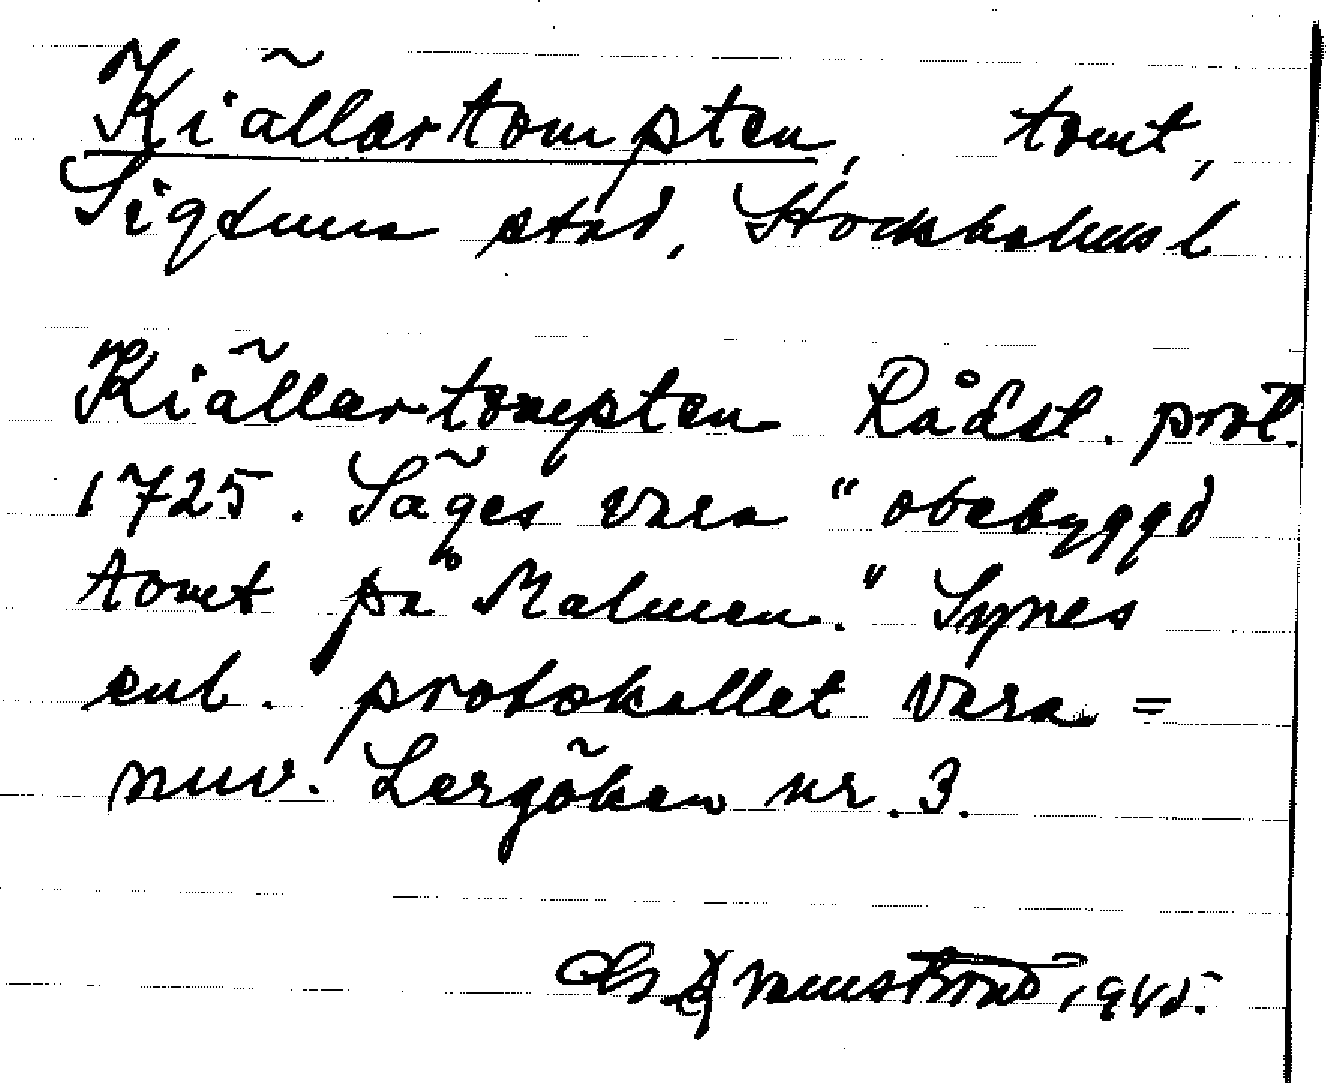 Kiällartompten, tomt,
Sigtuna stad, Stockholms l
Kiällartompten Rådst. prot.
1725. Säges vara "obebyggd
tomt på Malmen." Synes
enl. protokollet vara =
nuv. Lergöken nr. 3.
1945.